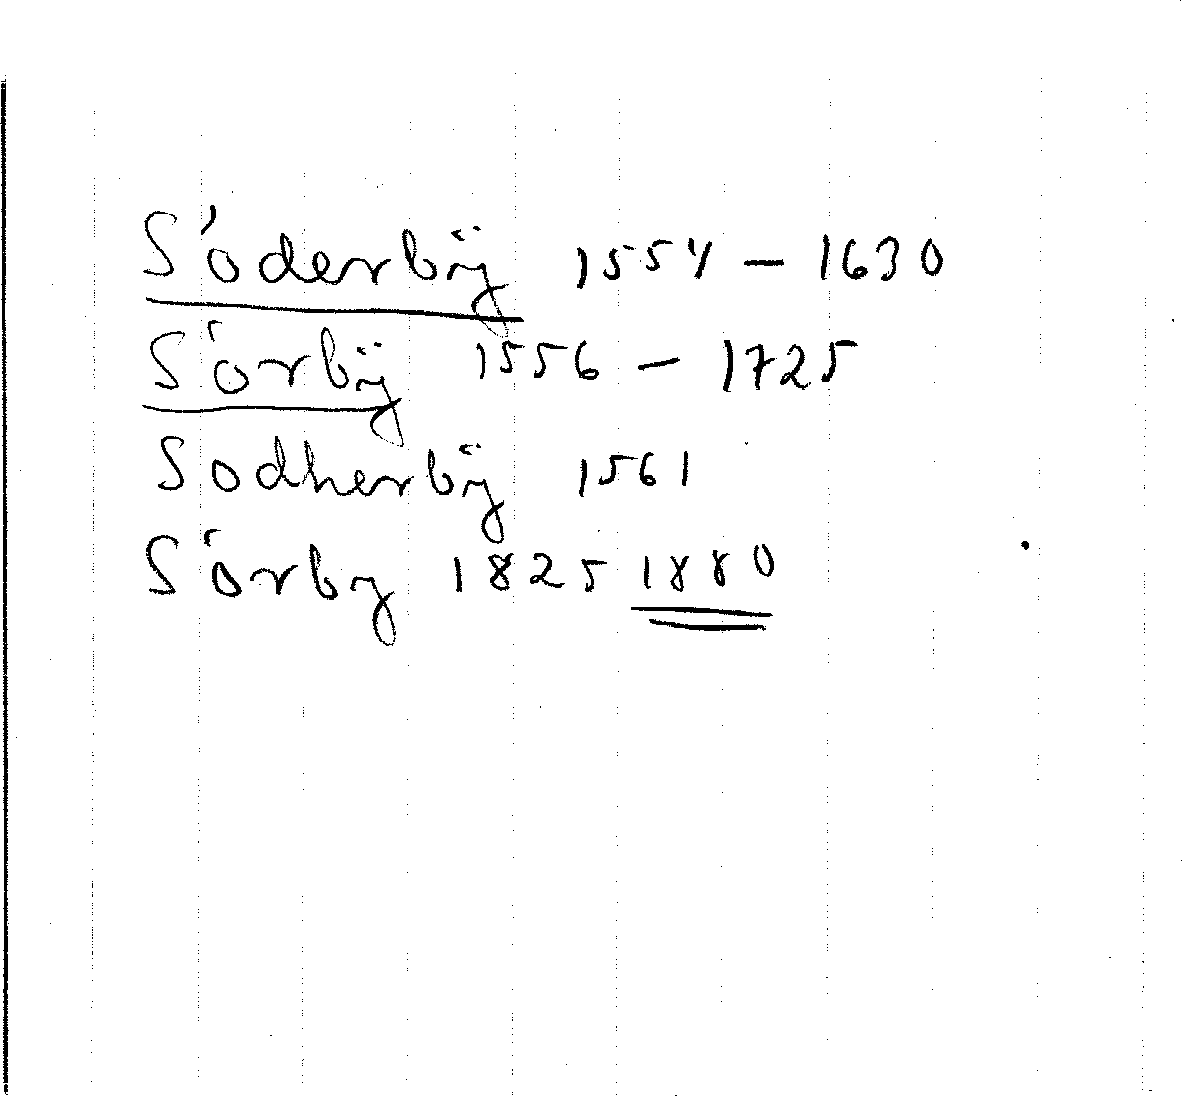 Söderbÿ 1554 – 1630
Sörbÿ 1556 – 1725
Sodherbÿ 1561
Sörby 1825 1880